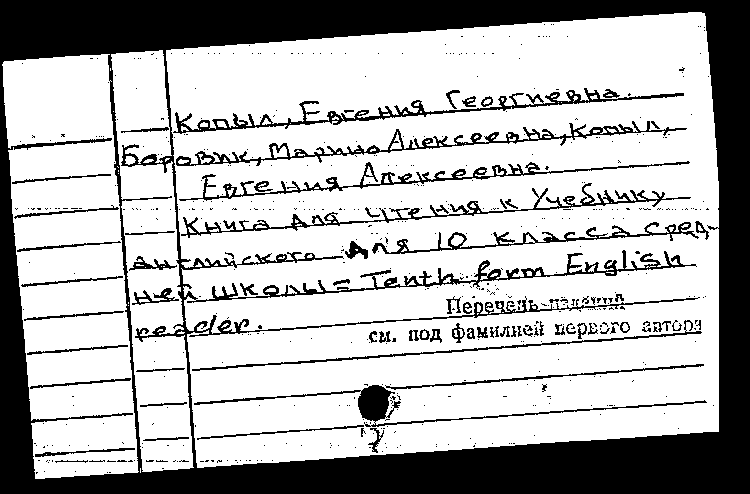 Копыл, Евгения Георгиевна.
Боровик, Марина Алексеевна, Копыл,
Евгения Алексеевна.
Книга для чтения к Учебнику
английского для 10 класса сред-
ней школы = Tenth form English
reader.
Перечень изданий
см. под фамилией первого автора